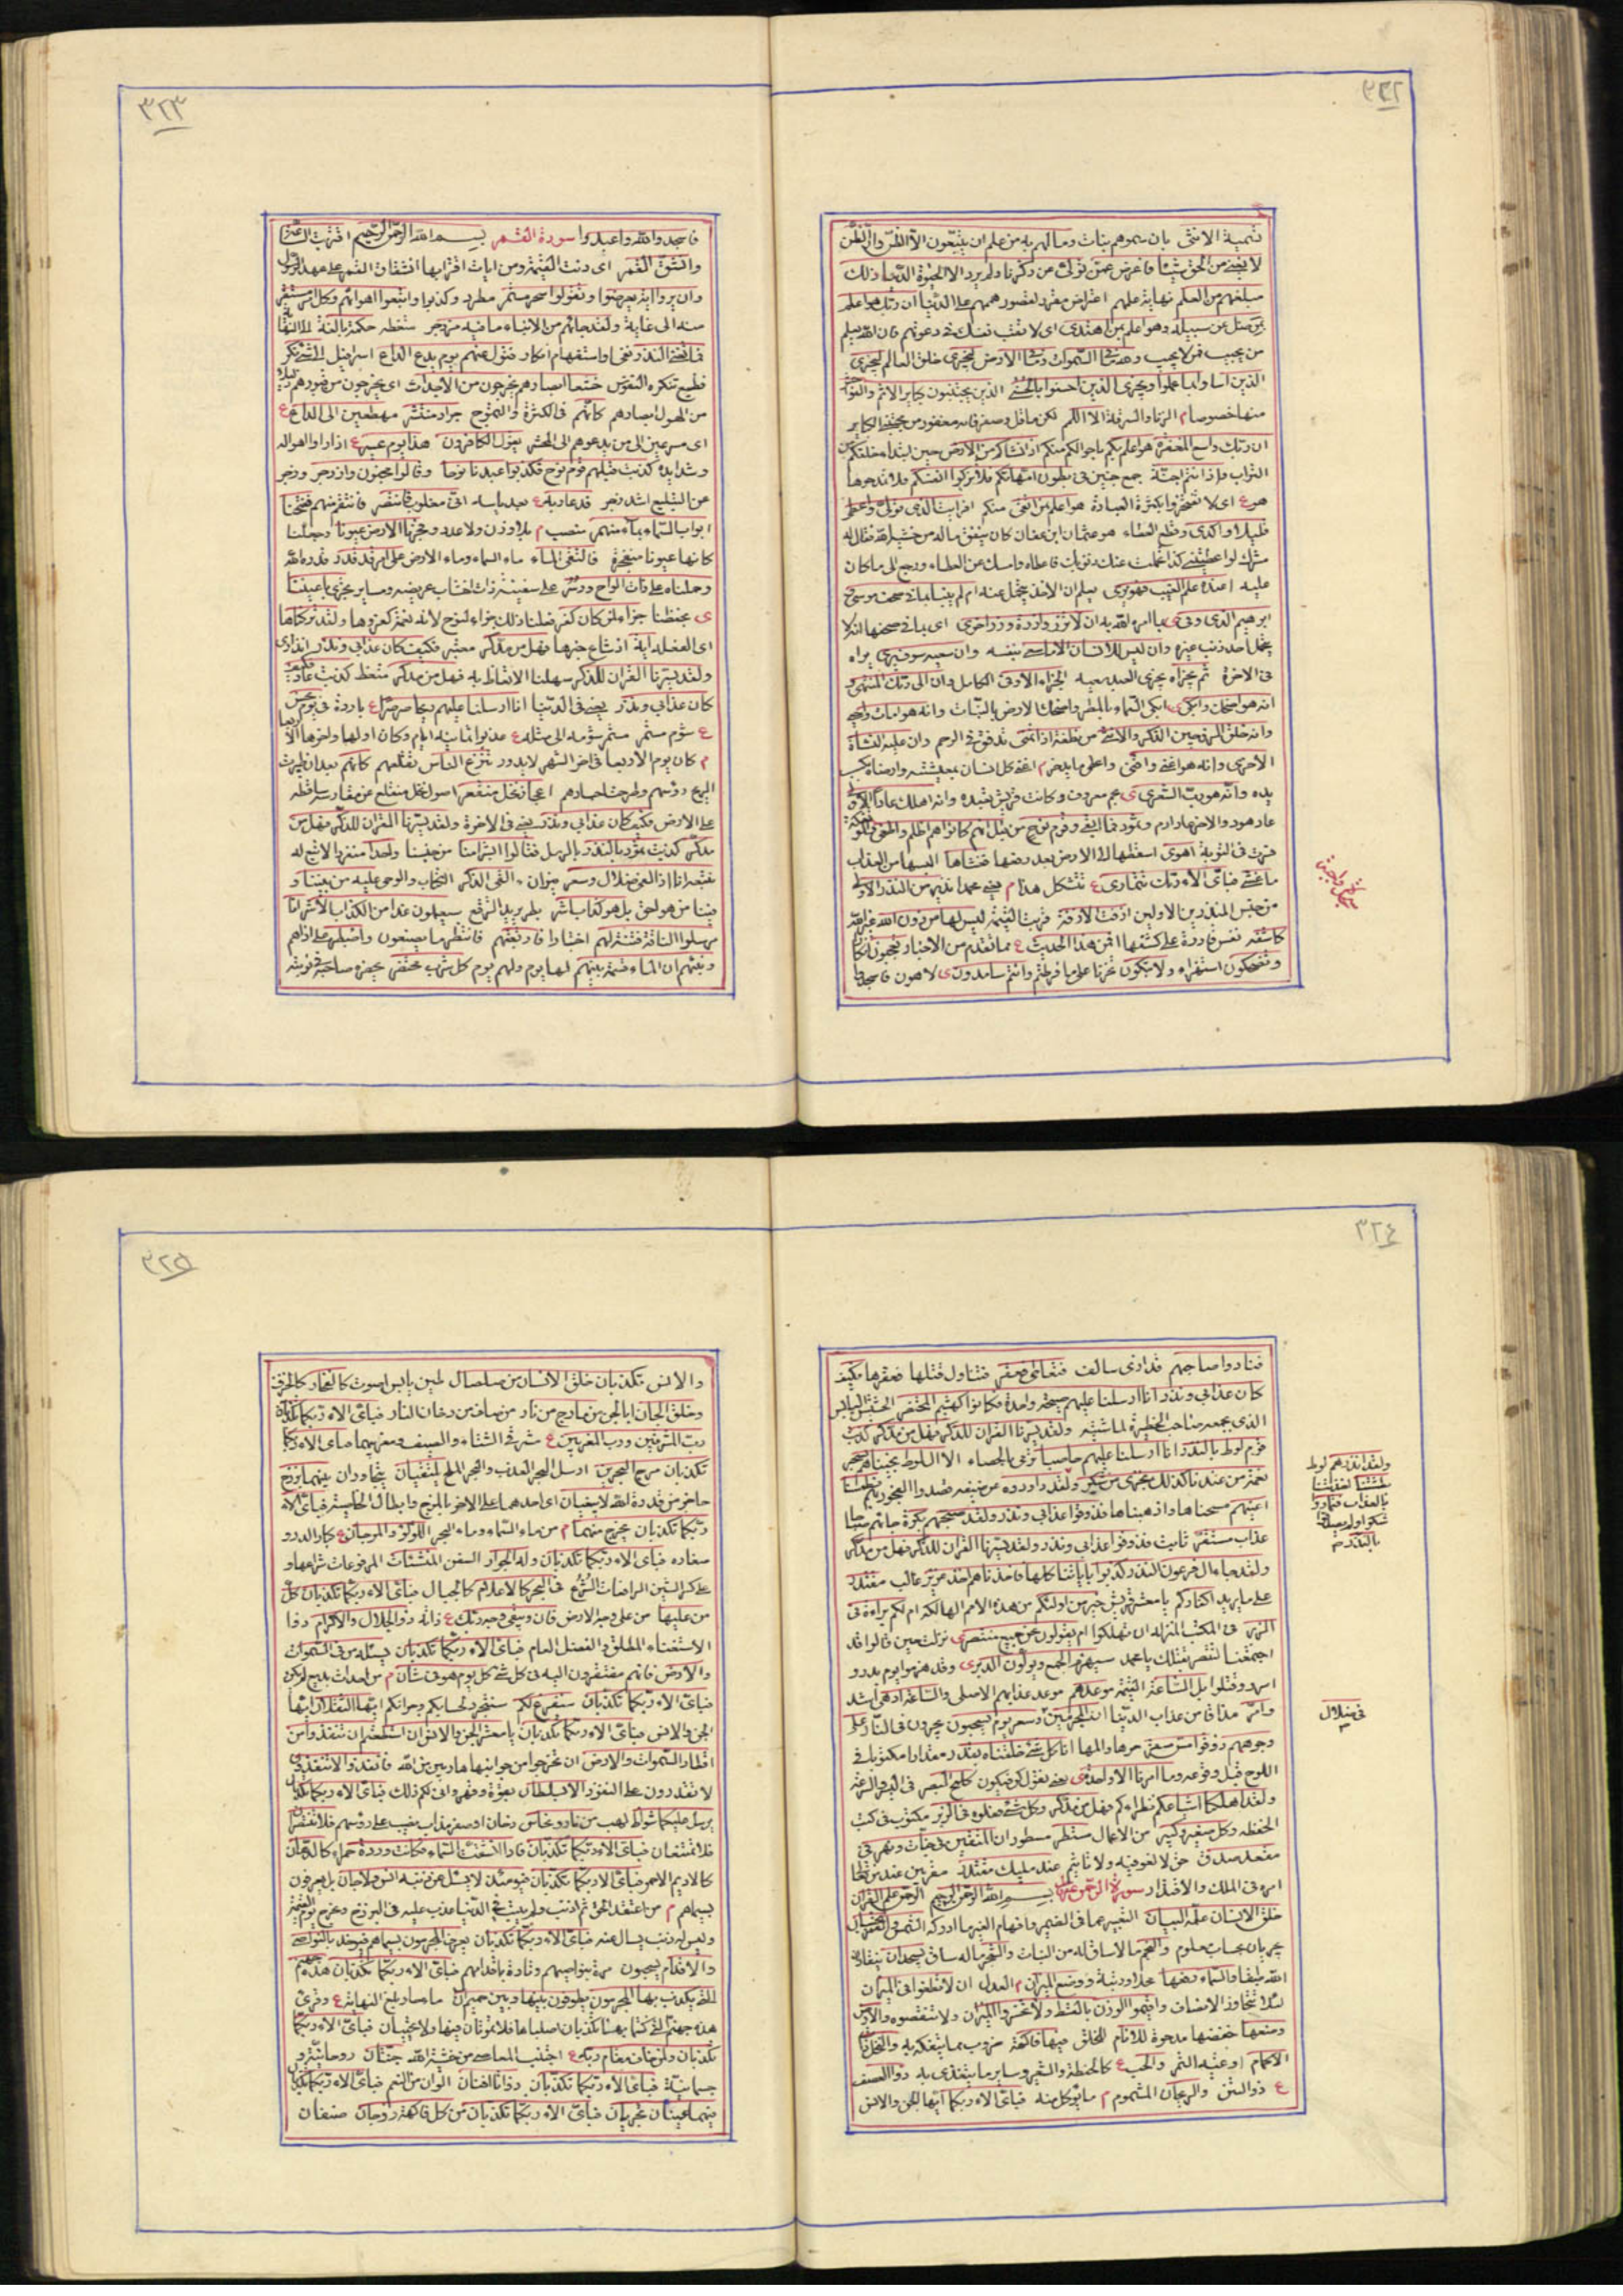 ٣٢٢
تسمية الانثى بان سموهم بنات وما لهم به من علم ان يتبعون الا الظن وان الظن
لا يغنى من الحق شيئا فاعرض عمن تولى عن ذكرنا ولم يرد الا الحيوة الدنيا ذلك
مبلغهم من العلم نهاية علمهم اعتراض مقرر لقصور هممهم على الدنيا ان ربك هو اعلم
بمن ضل عن سبيله وهو اعلم بمن اهتدى اى لا تتعب نفسك فى دعوتهم فان الله يعلم
من يجيب ممن لا يجيب ولله ما فى السموات وما فى الارض ليجزى خلق العالم ليجزى
الذين اساؤا بما عملوا ويجزى الذين احسنوا بالحسنى الذين يجتنبون كبائر الاثم والفواحش
منها خصوصا م الزنا والسرقة الا اللمم لكن ما قل وصغر فانه مغفور من مجتنبى الكباير
ان ربك واسع المغفرة هو اعلم بكم باحوالكم منكم اذ انشاكم من الارض حين ابتداء خلقكم من
التراب واذ انتم اجنة جمع جنين فى بطون امهاتكم فلا تزكوا انفسكم فلا تمدحوها
هوع اى لا تفتخروا بكثرة العبادة هو اعلم بمن اتقى منكم افرايت الذى تولى واعطى
قليلا واكدى وقطع العطاء هو عثمان ابن عفان كان ينفق ماله من خشية الله فقال له
عليه اعنده علم الغيب فهو يرى يعلم ان الاخذ يتحمل عنه ام لم ينبا بما فى صحف موسى و
ابرهيم الذى وفى ى بما امره الله به ان لا تزر وازرة وزر اخرى اى بما فى صحفها انه لا
يحمل احد ذنب غيره وان ليس للانسان الا ما سعى بنفسه وان سعيه سوف يرى يراه
فى الاخرة ثم يجزاه يجزى العبد سعيه الجزاء الاوفى الكامل وان الى ربك المنتهى و
انه هو اضحك وابكى ى ابكى السماء بالمطر واضحك الارض بالنبات وانه هو امات واحيى
وانه خلق الزوجين الذكر والانثى من نطفة اذا تمنى تدفق فى الرحم وان عليه النشاة
الاخرى وانه هو اغنى واقنى واعطى ما يدخر م اغنى كل انسان بمعيشته وارضاه بكسب
يده وانه هو رب الشعرى ى نجم معروف وكانت قريش تعبده وانه اهلك عادا الاولى
عاد هود والاخرى عاد ارم وثمود فما ابقى وقوم نوح من قبل انهم كانوا هم اظلم واطغى
اهوى اسقطها الى الارض بعد رفعها فغشاها البسها من العذاب
ما غشى فباى الاء ربك تتمارى ع تتشكك هذا م يعنى محمدا نذير من النذر الاولى
من جنس المنذرين الاولين ازفت الازفة قربت القيمة ليس لها من دون الله غير الله
كاشفة نفس قادرة على كشفها افمن هذا الحديث ع مما تقدم من الاخبار تعجبون انكارا
وتضحكون استهزاء ولا تبكون تحزنا على ما فرطتم وانتم سامدون ى لاهون فاسجدوا
٣٢٣
فاسجدوا لله واعبدوا سورة القمر بسم الله الرحمن الرحيم اقتربت الساعة
وانشق القمر اى دنت القيمة ومن ايات اقترابها انشقاق القمر على عهد الرسول
وان يروا اية يعرضوا ويقولوا سحر مستمر مطرد وكذبوا واتبعوا اهوائهم وكل امر مستقر
منته الى غاية ولقد جائهم من الانباء ما فيه مزدجر متعظ حكمة بالغة
فما تغنى النذر نفى او استفهام انكار فتول عنهم يوم يدع الداع اسرافيل الى شئ نكر
فظيع تنكره النفوس خشعا ابصارهم يخرجون من الاجداث اى يخرجون من قبورهم
من الهول ابصارهم كانهم فى الكثرة والتموج جراد منتشر مهطعين الى الداع ع
اى مسرعين الى من يدعوهم الى المحشر يقول الكافرون هذا يوم عسر
وشدايده كذبت قبلهم قوم نوح فكذبوا عبدنا نوحا وقالوا مجنون وازدجر وزجر
عن التبليغ اشد زجر فدعا ربه ع بعد ياسه انى مغلوب فانتصر فانتقم منهم ففتحنا
ابواب السماء بماء منهمر منصب م بلا وزن ولا عدد وفجرنا الارض عيونا وجعلنا
كانها عيونا منفجرة فالتقى الماء ماء السماء وماء الارض على امر قد قدر قدره الله
وحملناه على ذات الواح ودسر على سفينة ذات اخشاب عريضة ومسامير تجرى باعيننا
ى بحفظنا جزاء لمن كان كفر فعلنا ذلك جزاء لنوح لانه نعمة كفروها ولقد تركناها
اى الفعلة اية اذ شاع خبرها فهل من مدكر معتبر فكيف كان عذابى ونذر انذارى
ولقد يسرنا القران للذكر سهلنا الاتعاظ به فهل من مدكر متعظ كذبت عاد فكيف
كان عذابى ونذر يعنى فى الدنيا انا ارسلنا عليهم ريحا صرصرا ع باردة فى يوم نحس
م كان يوم الاربعا فى اخر الشهر لا يدور تنزع الناس تقلعهم
الريح رؤسهم وطرحت اجسادهم اعجاز نخل منقعر اصول نخل منقلع عن مغارسه ساقطة
على الارض فكيف كان عذابى ونذر يعنى فى الاخرة ولقد يسرنا القران للذكر فهل من
مدكر كذبت ثمود بالنذر بالرسل فقالوا ابشرا منا من جنسنا واحدا منفردا لا تبع له
نتبعه انا اذا لفى ضلال وسعر نيران ءالقى الذكر الكتاب والوحى عليه من بيننا و
فينا من هو احق بل هو كذاب اشر بطر يريد الترفع سيعلمون غدا من الكذاب الاشر انا
مرسلوا الناقة فتنة لهم اختبارا فارتقبهم فانتظر ما يصنعون واصطبر على اذاهم
ونبئهم ان الماء قسمة بينهم لها يوم ولهم يوم كل شرب محتضر يحضره صاحبه فى نوبته
٣٢٤
فنادوا صاحبهم قدار بن سالف فتعاطى فعقر فتناول قتلها فعقرها فكيف
كان عذابى ونذر انا ارسلنا عليهم صيحة واحدة فكانوا كهشيم المحتظر الحشيش اليابس
الذى يجمعه صاحب الحظيرة لماشيته ولقد يسرنا القران للذكر فهل من مدكر كذبت
قوم لوط بالنذر انا ارسلنا عليهم حاصبا ترمى بالحصباء الا ال لوط نجيناهم بسحر
نعمة من عندنا كذلك نجزى من شكر ولقد راودوه عن ضيفه قصدوا الفجور بهم فطمسنا
اعينهم مسحناها واذهبناها فذوقوا عذابى ونذر ولقد صبحهم بكرة جائهم صباحا
عذاب مستقر ثابت فذوقوا عذابى ونذر ولقد يسرنا القران للذكر فهل من مدكر
ولقد جاء ال فرعون النذر كذبوا باياتنا كلها فاخذناهم اخذ عزيز غالب مقتدر
على ما يريد اكفاركم يا معشر قريش خير من اولئكم من هذه الامم الهالكة ام لكم براءة فى
الزبر فى الكتب المنزلة ان لا تهلكوا ام يقولون نحن جميع منتصر ى نزلت حين قالوا قد
اجتمعنا لننتصر بقتلك يا محمد سيهزم الجمع ويولون الدبر ى وقد هزموا يوم بدر و
اسروا وقتلوا بل الساعة القيمة موعدهم موعد عذابهم الاصلى والساعة ادهى اشد
وامر مذاقا من عذاب الدنيا ان المجرمين وسعر يوم يسحبون يجرون فى النار على
وجوههم ذوقوا مس سقر حرها والمها انا كل شئ خلقناه بقدر مقدارا مكتوبا فى
اللوح قبل وقوعه وما امرنا الا واحدة ى يعنى نقول كن فيكون كلمح البصر فى اليسر والسرعة
ولقد اهلكنا اشياعكم نظراءكم فهل من مدكر وكل شئ فعلوه فى الزبر مكتوب فى كتب
الحفظة وكل صغير وكبير من الاعمال مستطر مسطور ان المتقين فى جنات ونهر فى
مقعد صدق حق لا لغو فيه ولا تاثيم عند مليك مقتدر مقربين عند من تعالى
امره فى الملك والاقتدار سورة الرحمن بسم الله الرحمن الرحيم الرحمن علم القران
خلق الانسان علمه البيان التعبير عما فى الضمير وافهام الغير ما ادركه الشمس والقمر بحسبان
يجريان بحساب معلوم والنجم ما لا ساق له من النبات والشجر ما له ساق يسجدان ينقادان
لله طبعا والسماء رفعها محلا ورتبة ووضع الميزان م العدل ان لا تطغوا فى الميزان
لئلا تتجاوز الانصاف واقيموا الوزن بالقسط ولا تخسروا الميزان ولا تنتقصوه والارض
وضعها خفضها مدحوة للانام للخلق فيها فاكهة ضروب مما يتفكه به والنخل ذات
الاكمام اوعية الثمر والحب ع كالحنطة والشعير وساير ما يتغذى به ذو العصف
ع ذو التبن والريحان المشموم م ما يؤكل منه فباى الاء ربكما ايها الجن والانس
ولقد انذرهم لوط
بطشتنا
بالعذاب فتماروا
بالنذر صح
فى ضلال
٣٢٥
والانس تكذبان خلق الانسان من صلصال طين يابس له صوت كالفخار كالخزف
وخلق الجان ابا الجن من مارج من نار من صاف من دخان النار فباى الاء ربكما تكذبان
رب المشرقين ورب المغربين ع مشرقى الشتاء والصيف ومغربيهما فباى الاء ربكما
تكذبان مرج البحرين ارسل البحر العذب والبحر الملح يلتقيان يتجاوران بينهما برزخ
حاجز من قدرة الله لا يبغيان اى احدهما على الاخر بالمزج وابطال الخاصية فباى الاء
ربكما تكذبان يخرج منهما م من ماء السماء وماء البحر اللؤلؤ والمرجان ع كبار الدر و
صغاره فباى الاء ربكما تكذبان وله الجوار السفن المنشئات المرفوعات شراعها و
على كسر الشين الرافعات الشرع فى البحر كالاعلام كالجبال فباى الاء ربكما تكذبان كل
من عليها من على وجه الارض فان ويبقى وجه ربك ع ذاته ذو الجلال والاكرام ذو ا
الاستغناء المطلق والفضل العام فباى الاء ربكما تكذبان يسئله من فى السموات
والارض فانهم مفتقرون اليه فى كل شئ كل يوم هو فى شان م من احداث بديع لم يكن
فباى الاء ربكما تكذبان سنفرغ لكم سنتجرد لحسابكم وجزائكم ايها الثقلان ايها
الجن والانس فباى الاء ربكما تكذبان يا معشر الجن والانس ان استطعتم ان تنفذوا من
اقطار السموات والارض ان تخرجوا من جوانبها هاربين من الله فانفذوا لا تنفذون
لا تقدرون على النفوذ الا بسلطان بقوة وقهر وانى لكم ذلك فباى الاء ربكما تكذبان
يرسل عليكما شواظ لهب من نار ونحاس دخان او صفر مذاب يصب على رؤسهم فلا تنتصران
فلا تمتنعان فباى الاء ربكما تكذبان فاذا انشقت السماء فكانت وردة حمراء كالدهان
كالاديم الاحمر فباى الاء ربكما تكذبان فيومئذ لا يسئل عن ذنبه انس ولا جان بل يعرفون
بسيماهم م من اعتقد الحق ثم اذنب ولم يتب فى الدنيا عذب عليه فى البرزخ ويخرج يوم القيمة
وليس له ذنب يسال عنه فباى الاء ربكما تكذبان يعرف المجرمون بسيماهم فيؤخذ بالنواصى
والاقدام يسحبون مرة بنواصيهم وتارة باقدامهم فباى الاء ربكما تكذبان هذه جهنم
التى يكذب بها المجرمون يطوفون بينها وبين حميم ان ماء حار بلغ النهاية ع وقرئ
هذه جهنم التى كنتما بهما تكذبان اصلياها فلا تموتان فيها ولا تحييان فباى الاء ربكما
تكذبان ولمن خاف مقام ربه ع اجتنب المعاصى من خشية الله جنتان روحانية و
جسمانية فباى الاء ربكما تكذبان ذواتا افنان الوان من النعم فباى الاء ربكما تكذبان
فيهما عينان تجريان فباى الاء ربكما تكذبان من كل فاكهة زوجان صنفان